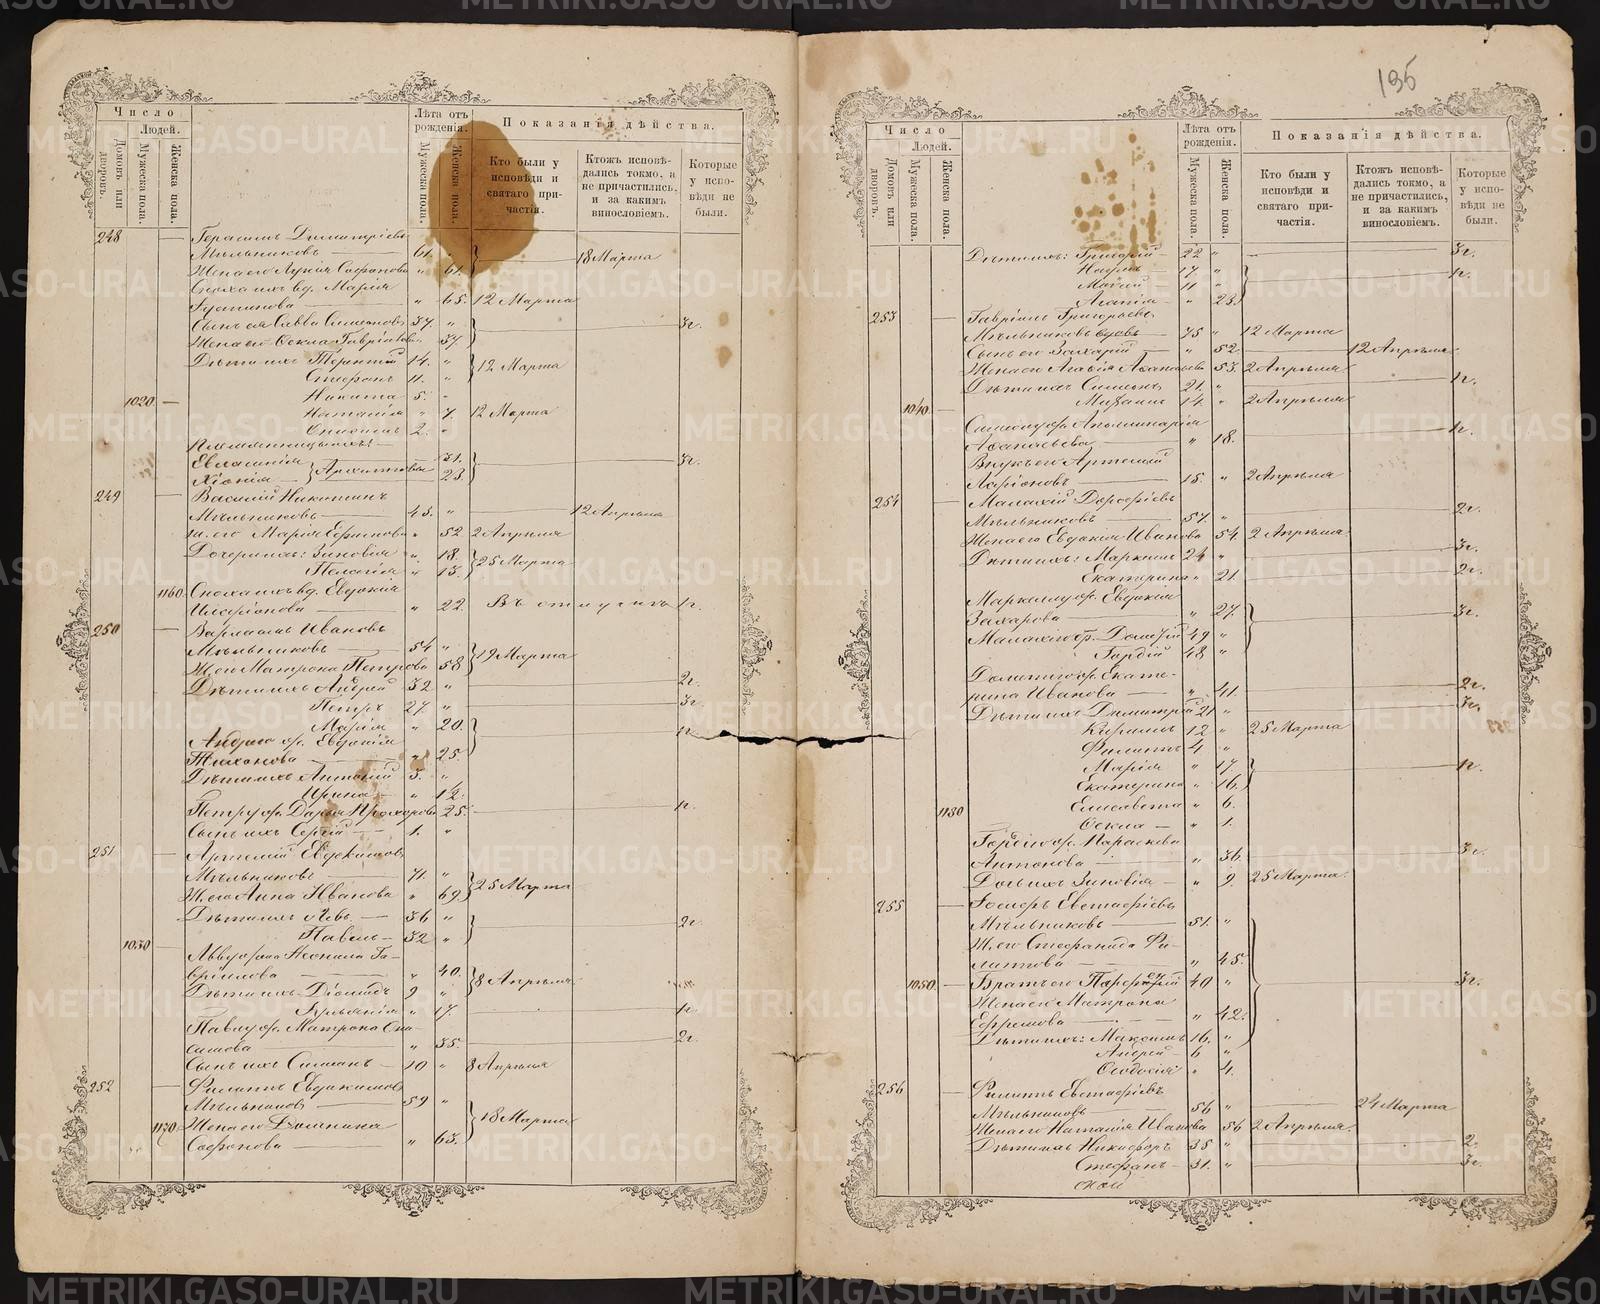 135
Число
Людей.
Домовъ или дворовъ.
Мужеска пола.
Женска пола.
Лѣта отъ рожденія.
Мужеска пола.
Женска пола.
Показанія дѣйства.
Кто были у исповѣди и святаго причастія.
Ктожъ исповѣдались токмо, а не причастились, и за какимъ винословіемъ.
Которые у исповѣди не были.
248 Герасимъ Димитріевъ
Мѣльниковъ 61. 18 Марта
Жена его Лукія Сафонова „ 61.
Сноха ихъ вд. Марія
„ 65. 12 Марта
Сынъ ея Савва Симеоновъ 37. „ 3г.
Жена его Ѳекла Гавріилова 37.
Дѣти ихъ Терентій 14. „ 12 Марта
Стефанъ 11. „
1020 Никита 5. „
Наталія „ 7. 12 Марта
2. „
Племянницы ихъ:
Евлампія 31. 3г.
Хіонія Архиповы 23.
249 Василій Никитинъ
Мѣльниковъ 43. „ 12 Апрѣля
ж. его Марія Ефимова „ 52 2 Апрѣля
Дочери ихъ: Зиновія „ 18. 25 Марта
Пелагія „ 13.
1160. Сноха ихъ вд. Евдокія
„ 22. Въ отлучкѣ 1г.
250 Варлаамъ Ивановъ
Мѣльниковъ 54 „ 19 Марта
Ж. его Матрона Петрова 58
Дѣти ихъ Андрей 32 „ 2г.
Петръ 27 „ 3г.
Марія „ 20. 1г.
Андрею ж. Евдокія
Тиханова „ 25.
Дѣти ихъ Антоній 3. „
Ирина „ 1/2.
Петру ж. Дарья Прохорова 25. 1г.
Сынъ ихъ Сергій 1. „
251 Артемій Евдокимовъ
Мѣльниковъ 71. „ 25 Марта
Ж. его Анна Иванова „ 69
Дѣти ихъ Левъ 36 „ 2г.
Павелъ 32 „
1030 Неонила Га-
вріилова „ 40. 8 Апрѣля
Дѣти ихъ Діомидъ 9 „
Іуліанія „ 17. 1г.
Павлу ж. Матрона
„ 35. 2г.
Сынъ ихъ 10 „ 8 Апрѣля
252 Филиппъ Евдокимовъ
Мѣльниковъ 59 „ 18 Марта
1170. Жена его Домника
Сафонова „ 63.
Число
Людей.
Домовъ или дворовъ.
Мужеска пола.
Женска пола.
Лѣта отъ рожденія.
Мужеска пола.
Женска пола.
Показанія дѣйства.
Кто были у исповѣди и святаго причастія.
Ктожъ исповѣдались токмо, а не причастились, и за какимъ винословіемъ.
Которые у исповѣди не были.
Дѣти ихъ: Григорій 22 „ 3г.
17 „ 1г.
11 „
Агапія „ 23.
253 Гавріилъ Григорьевъ
Мѣльниковъ вдовъ 75 „ 12 Марта
Сынъ его Захарій „ 52. 12 Апрѣля
Жена его Агафія Аѳанасьева 53. 2 Апрѣля
Дѣти ихъ Симеонъ 21. „ 1г.
1040 14. „ 2 Апрѣля
Симеону ж. Аполлинарія
Аѳанасьева „ 18. 1г.
Внукъ его Артемій
Ларіоновъ 15. „ 2 Апрѣля
254 Малахій Дорофіевъ
Мѣльниковъ 57. „ 2г.
Жена его Евдокія Иванова 54. 2 Апрѣля
Дѣти ихъ: Маркелъ 24 „ 3г.
Екатерина „ 21. 2г.
Маркелу ж. Евдокія
Захарова „ 27. 3г.
49 „
Гордій 48 „
ж. Екате-
рина Иванова „ 41. 2г.
Дѣти ихъ Димитрій 21 „ 3г.
Кирилъ 12 „ 25 Марта
Филиппъ 4 „
Марія „ 17. 1г.
Екатерина „ 16.
1180 Елисавета „ 6.
Ѳекла „ 1.
Гордію ж. Параскева
Антонова „ 36. 3г.
Дочь ихъ Зиновія „ 9. 25 Марта
255 Евстафіевъ
Мѣльниковъ 51. „
Ж. его Стефанида Фи-
липпова „ 45.
1050 Братъ его 40 „ 3г.
Жена его Матрона
Ефремова „ 42.
Дѣти ихъ: Максимъ 16. „
Андрей 6 „
Ѳеодосія „ 4.
256 Филиппъ Евстафіевъ
Мѣльниковъ 56 „ 24 Марта
Жена его Наталія Иванова 56 2 Апрѣля
Дѣти ихъ Никифоръ 35 „ 2.
Стефанъ 31. „ 3г.
METRIKI.GASO-URAL.RU